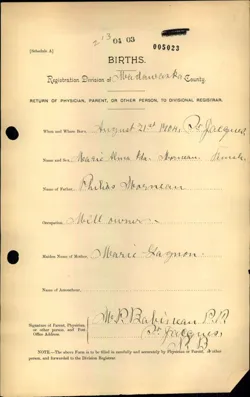 213 04 03
005023
[Schedule A]
BIRTHS.
Registration Division of Madawaska County.
RETURN OF PHYSICIAN, PARENT, OR OTHER PERSON, TO DIVISIONAL REGISTRAR.
When and Where Born, August 21st 1904, St Jacques
Name and Sex, Marie Alma Ida Morneau. Female
Name of Father, Philias Morneau
Occupation, Mill owner
Maiden Name of Mother, Marie Gagnon
Name of Accoucheur,
Signature of Parent, Physician,
or other person, and Post
Office Address.
Babineau P.P.
St Jacques
N.B.
NOTE.—The above Form is to be filled in carefully and accurately by Physician or Parent, or other
person, and forwarded to the Division Registrar.